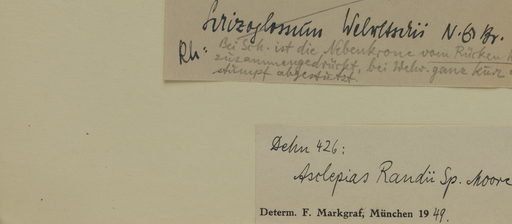 Schizoglossum Welwitschii N. E. Br.
Rh: Bei Sch. ist die Nebenkrone vom Rücken
zusammengedrückt, bei Welw. ganz kurz
stumpf abgestutzt.
Dehn 426:
Asclepias Randii Sp. Moore
Determ. F. Markgraf, München 1949.